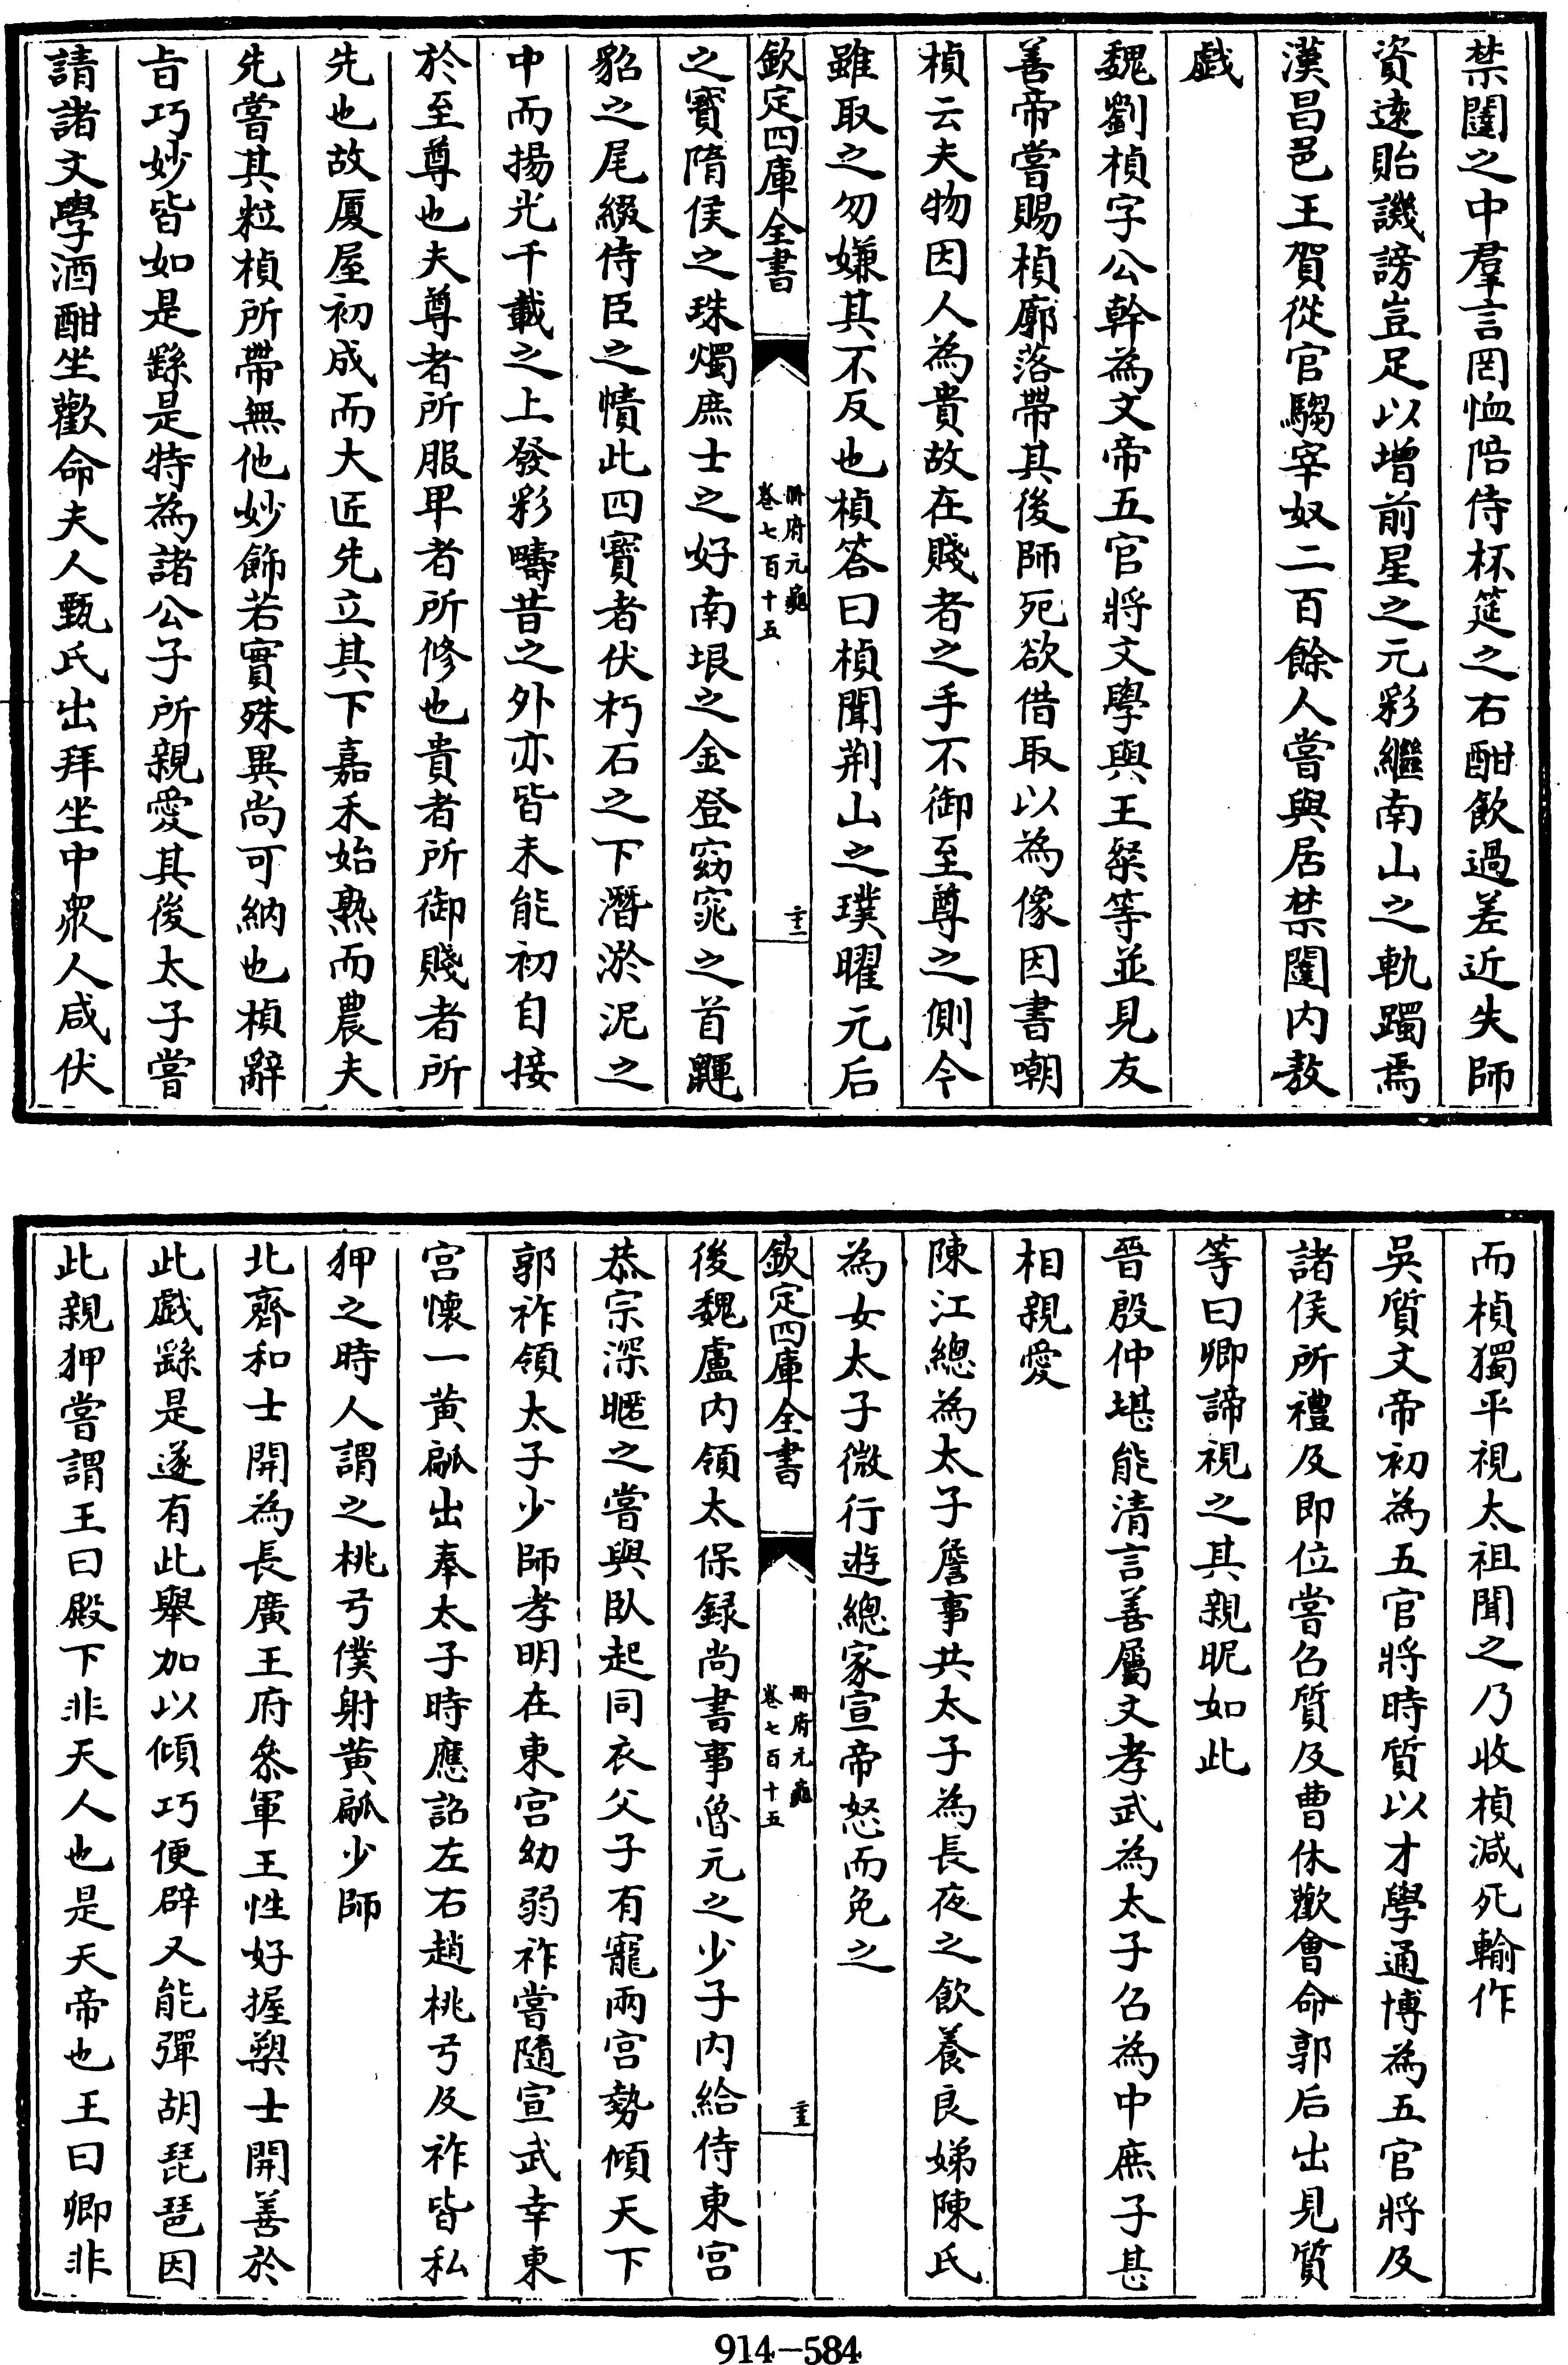 禁闥之中羣言罔恤陪侍杯筵之右酣飲過差近失師
資遠貽譏謗豈足以增前星之元彩繼南山之軌躅焉
漢昌邑王賀從官騶宰奴二百餘人嘗與居禁闥內敖
戯
魏劉楨字公幹為文帝五官將文學與王粲等並見友
善帝嘗賜楨廓落帶其後師死欲借取以為像因書嘲
楨云夫物因人為貴故在賤者之手不御至尊之側今
雖取之勿嫌其不反也楨答曰楨聞荆山之璞曜元后
欽定四庫全書
冊府元龜
卷七百十五
之寶隋侯之珠燭庶士之好南垠之金登窈窕之首鼲
貂之尾綴侍臣之幘此四寶者伏朽石之下潛淤泥之
中而揚光千載之上發彩疇昔之外亦皆未能初自接
於至尊也夫尊者所服卑者所修也貴者所御賤者所
先也故厦屋初成而大匠先立其下嘉禾始熟而農夫
先嘗其粒楨所帶無他妙飾若實殊異尚可納也楨辭
㫖巧妙皆如是繇是特為諸公子所親愛其後太子嘗
請諸文學酒酣坐歡命夫人甄氏出拜坐中衆人咸伏
而楨獨平視太祖聞之乃收楨減死輸作
吳質文帝初為五官將時質以才學通博為五官將及
諸侯所禮及即位嘗召質及曹休歡會命郭后出見質
等曰卿諦視之其親昵如此
晉殷仲堪能清言善屬文孝武為太子召為中庶子甚
相親愛
陳江總為太子詹事共太子為長夜之飲養良娣陳氏
為女太子微行遊總家宣帝怒而免之
欽定四庫全書
冊府元龜
卷七百十五
後魏盧內領太保録尚書事魯元之少子內給侍東宮
恭宗深暱之嘗與臥起同衣父子有寵兩宮勢傾天下
郭祚領太子少師孝明在東宮幼弱祚嘗隨宣武幸東
宮懷一黄㼐出奉太子時應詔左右趙桃弓及祚皆私
狎之時人謂之桃弓僕射黄㼐少師
北齊和士開為長廣王府叅軍王性好握槊士開善於
此戯繇是遂有此舉加以傾巧便辟又能彈胡琵琶因
此親狎嘗謂王曰殿下非天人也是天帝也王曰卿非
914-584